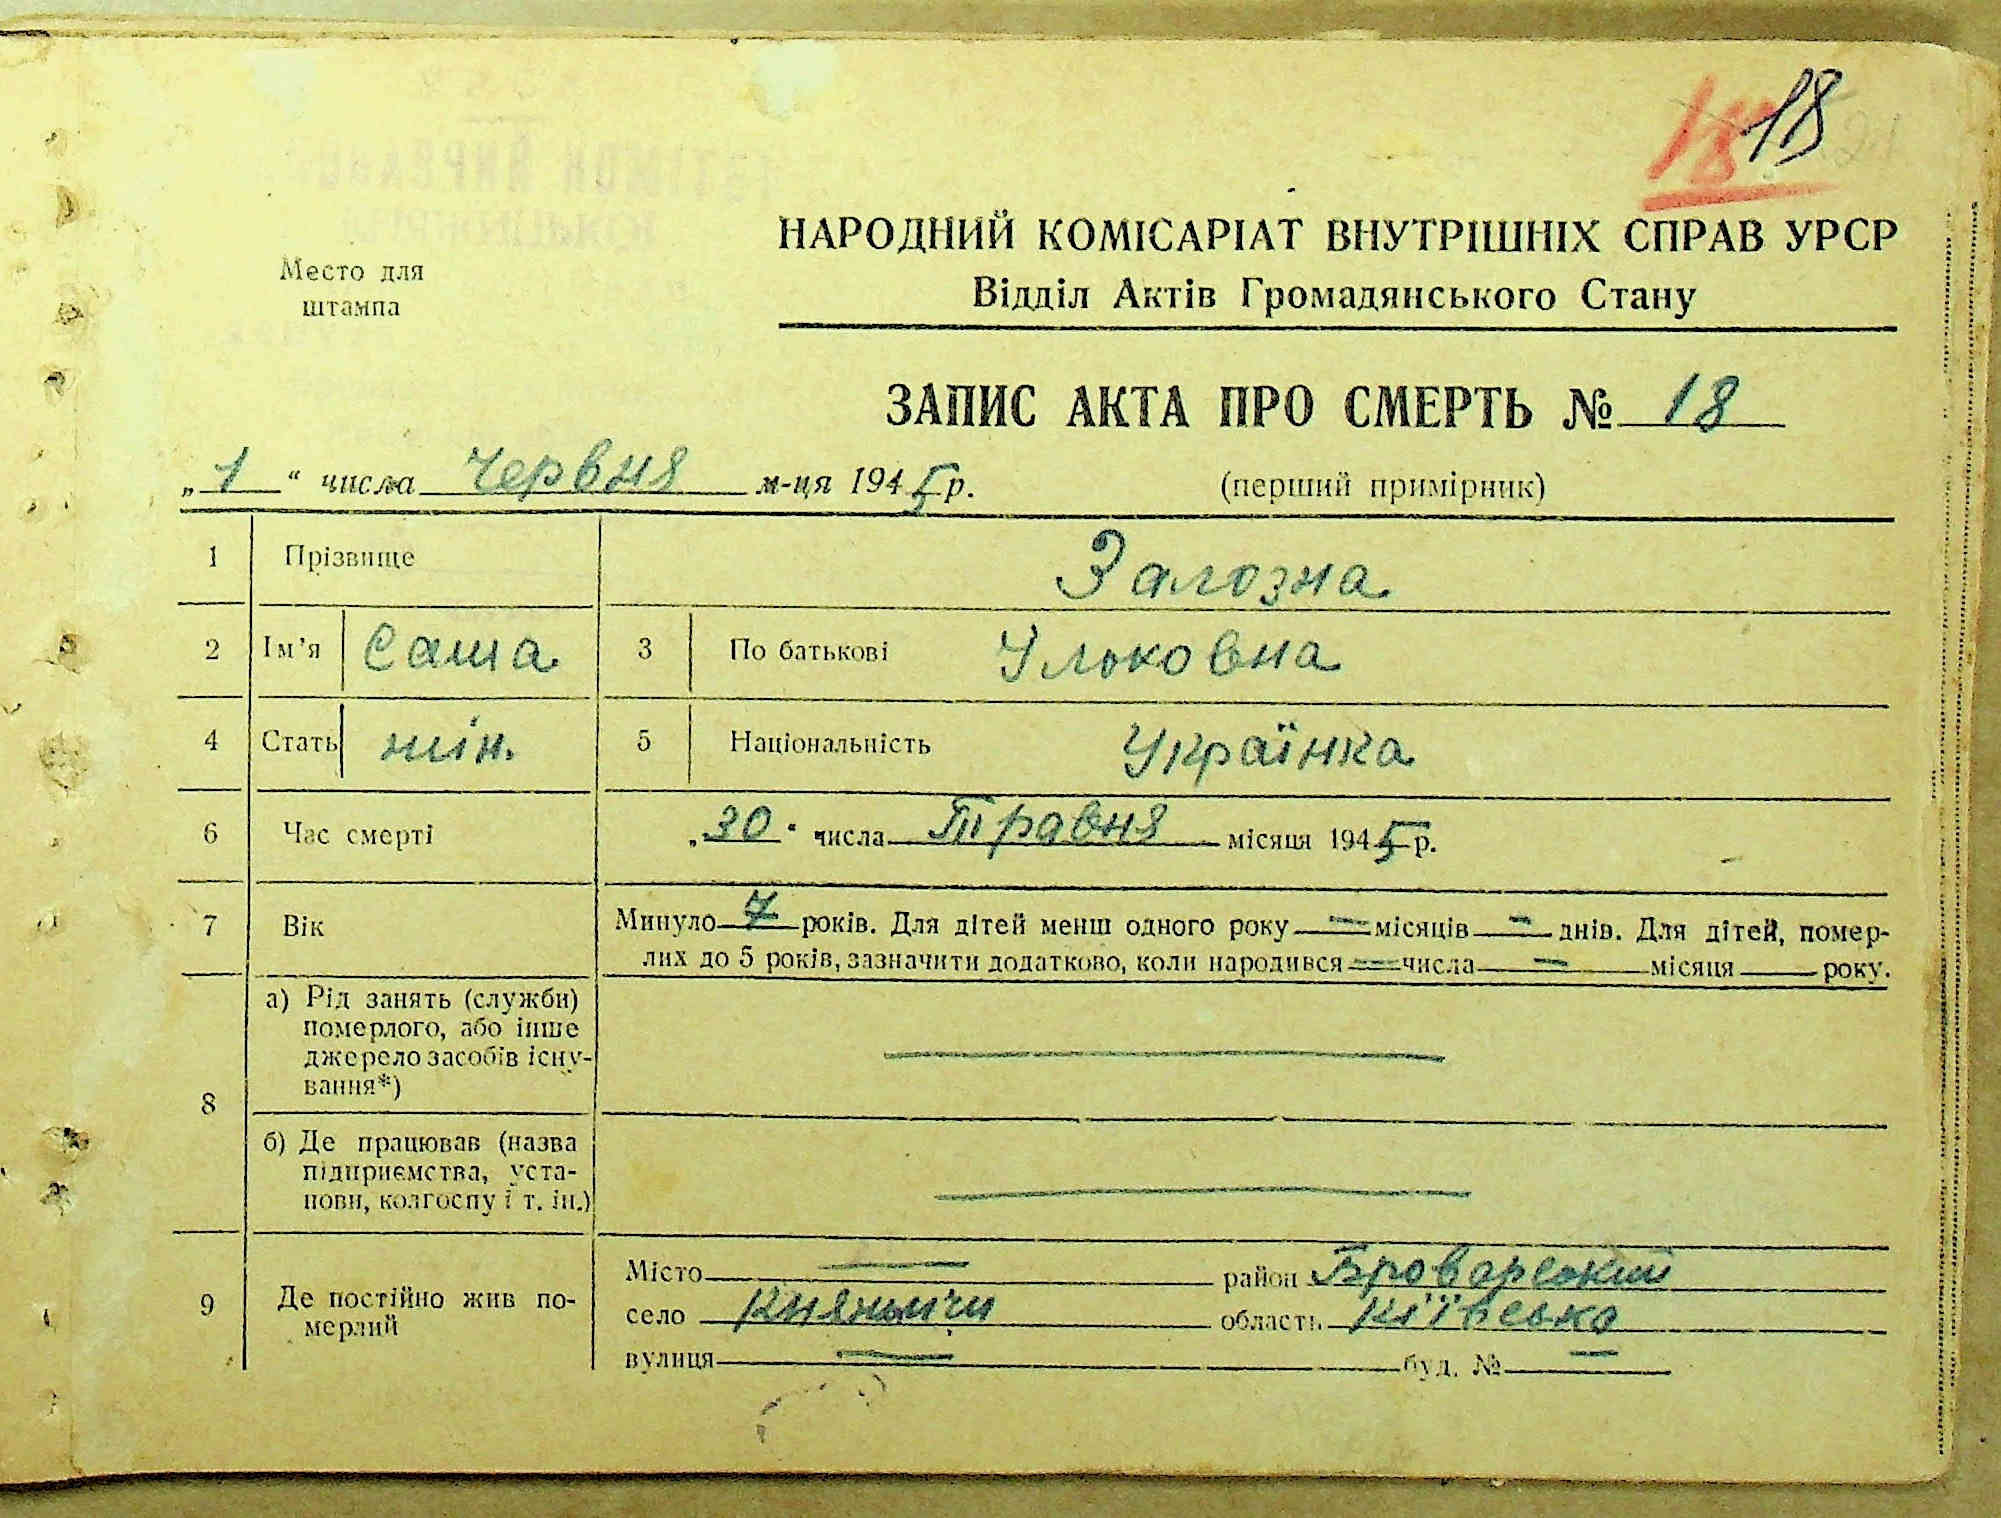 18 18 21
Место для
штампа
НАРОДНИЙ КОМІСАРІАТ ВНУТРІШНІХ СПРАВ УРСР
Відділ Актів Громадянського Стану
ЗАПИС АКТА ПРО СМЕРТЬ № 18
„1“ числа Червня м-ця 1945 р. (перший примірник)
1 Прізвище Залозна
2 Ім'я Саша 3 По батькові Ульковна
4 Стать жін. 5 Національність Українка
6 Час смерті „30“ числа Травня місяця 1945 р.
7 Вік Минуло 7 років. Для дітей менш одного року — місяців — днів. Для дітей, помер-
лих до 5 років, зазначити додатково, коли народився — числа — місяця року.
8 а) Рід занять (служби)
померлого, або інше
джерело засобів існу-
вання*) —
б) Де працював (назва
підприємства, уста-
нови, колгоспу і т. ін.) —
9 Де постійно жив по-
мерлий
Місто — район Броварський
село Княжичи область Київська
вулиця — буд. № —